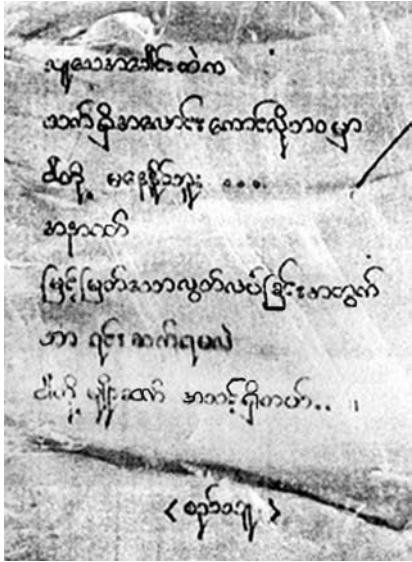 လူသေအခေါင်းထဲက
သက်ရှိအလောင်းကောင်လိုဘဝမှာ
ငါတို့ မနေနိုင်ဘူး ...
အနာဂတ်
မြင့်မြတ်သောလွတ်လပ်ခြင်းအတွက်
ဘာ ရင်းဆက်ရမလဲ
ငါတို့ မျိုးဆက် အသင့်ရှိတယ်.. ။